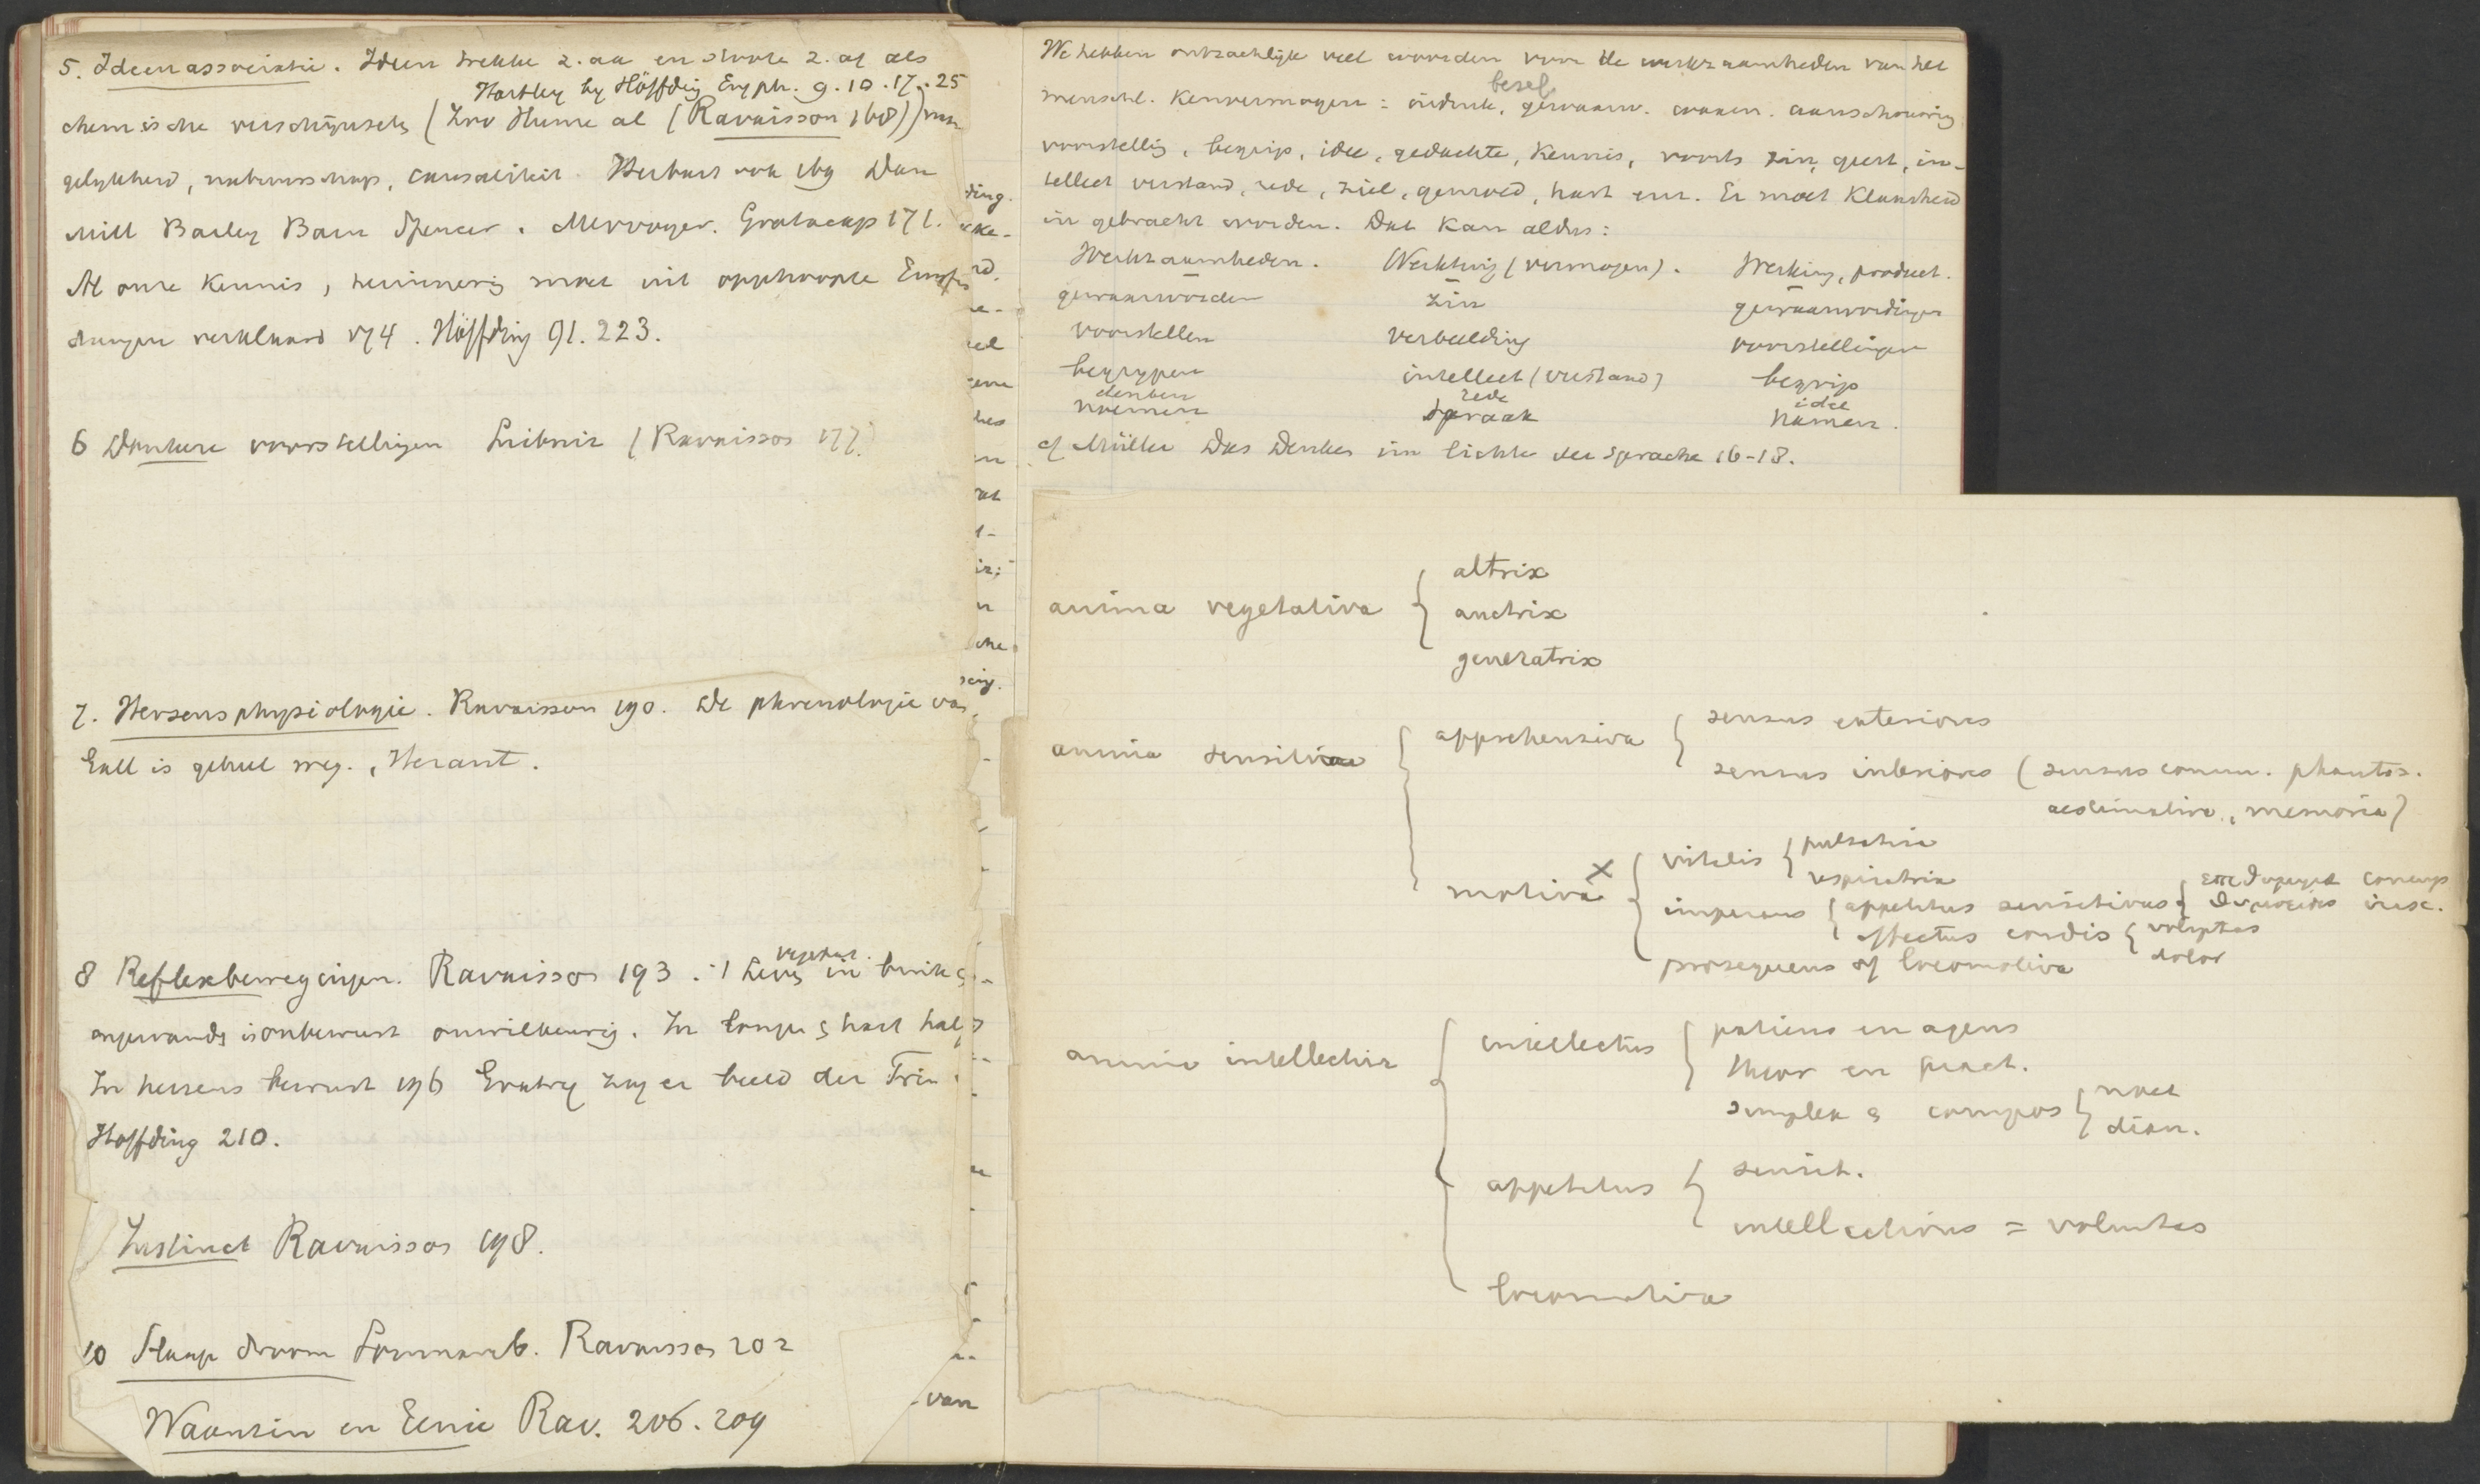 5. Ideenassociatie. Ideen trekken z. aan en stoote z. af als
Hartley by Höffding Engph. 9. 10. 17. 25
chemische verschijnsels (Zoo Hume al (Ravaisson 168)) van
gelykheid, nabuurschap, causaliteit. Herbart ook 169 Dan
Mill Bailey Bain Spencer. Mervoyer. Gratacap 171.
Al onze kennis, herinnering moet uit opphoopte
verklaard 174. Höffding 91. 223.
6 Donkere voorstellingen Leibniz (Ravaisson 177.
7. Hersensphysiologie. Ravaisson 190. De phrenologie van
Gall is geheel weg.
8 Reflexbewegingen. Ravaisson 193. Leven in buik &
vegetat.
ingewanden is onbewust onwillekeurig. In longen & hart half
In hersens bewust 196 Gratry zag er beeld der Trin.
Höffding 210.
Instinct Ravaisson 198.
10 Slaap droom Somnamb. Ravaisson 202
Waanzin en Genie Rav. 206. 209
van
We hebben ontzachlijk veel woorden voor de werkzaamheden van het
besef
menschl. Kenvermogen: indruk, gewaarw. waarn. aanschouwing
voorstelling, begrip, idee, gedachte, kennis, voorts zin, geest, in-
tellect verstand, rede, ziel, gemoed, hart enz. Er moet klaarheid
in gebracht worden. Dat kan aldus:
Werkzaamheden. Werktuig (vermogen). Werking, product.
gewaarworden zin gewaarwordingen
voorstellen verbeelding voorstellingen
begrypen intellect (verstand) begrip
denken rede idee
noemen spraak namen.
cf Müller Das Denken im Lichte der Sprache 16-18.
anima vegetativa { altrix
auctrix
generatrix
anima sensitiva { apprehensiva { sensus exteriores
sensus interiores (sensus comm. phantas.
aestimativa, memoria)
motiva x { vitalis { pulsativa
respiratrix
imperans { appetitus sensitivus { concup
irasc.
affectus cordis { voluptas
dolor
prosequens of locomotiva
anima intellectiva { intellectus { patiens en agens
theor en pract.
simplex & compos { noet
dian.
appetitus { sensit.
intellectivus = voluntas
locomotiva